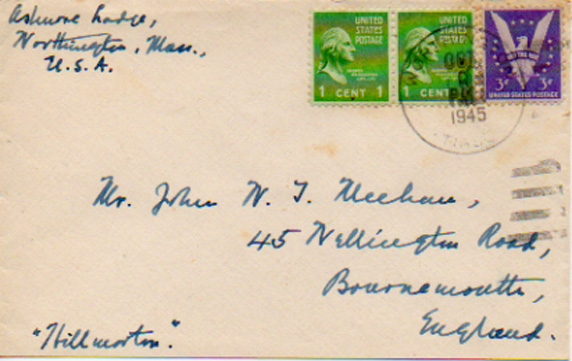 Ashmore Lodge,
Worthington, Mass.,
U.S.A.
UNITED STATES POSTAGE
1 CENT 1
UNITED STATES POSTAGE
1 CENT
WIN THE WAR
3¢ 3¢
UNITED STATES POSTAGE
1945
MASS
Mr. John W. J. Meehan,
45 Wellington Road,
Bournemouth,
England.
"Hillmorton".